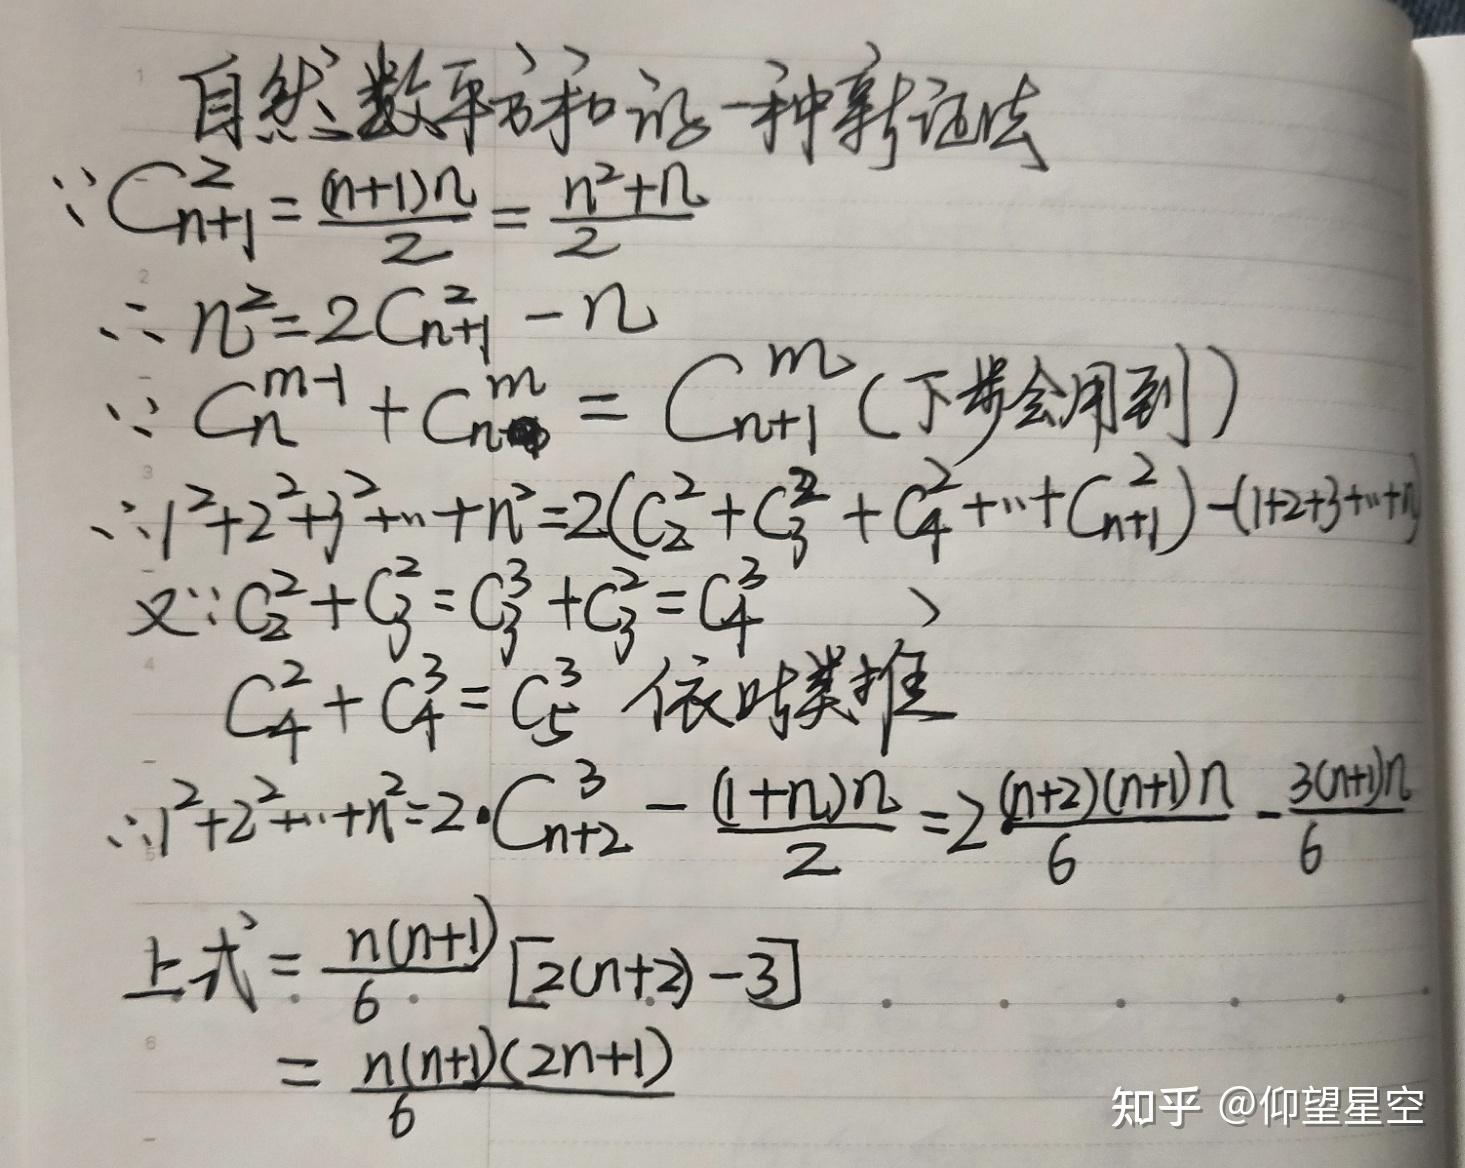 自然数平方和的一种新证法
∵ C_{n+1}^2 = (n+1)n/2 = (n²+n)/2
∴ n² = 2C_{n+1}^2 - n
∵ C_n^{m-1} + C_n^m = C_{n+1}^m (下步会用到)
∴ 1²+2²+3²+…+n² = 2(C_2^2 + C_3^2 + C_4^2 + … + C_{n+1}^2) - (1+2+3+…+n)
又∵ C_2^2 + C_3^2 = C_3^3 + C_3^2 = C_4^3
C_4^2 + C_4^3 = C_5^3 依时类推
∴ 1²+2²+…+n² = 2·C_{n+2}^3 - (1+n)n/2 = 2(n+2)(n+1)n/6 - 3(n+1)n/6
上式 = n(n+1)/6 [2(n+2)-3]
= n(n+1)(2n+1)/6
知乎 @仰望星空